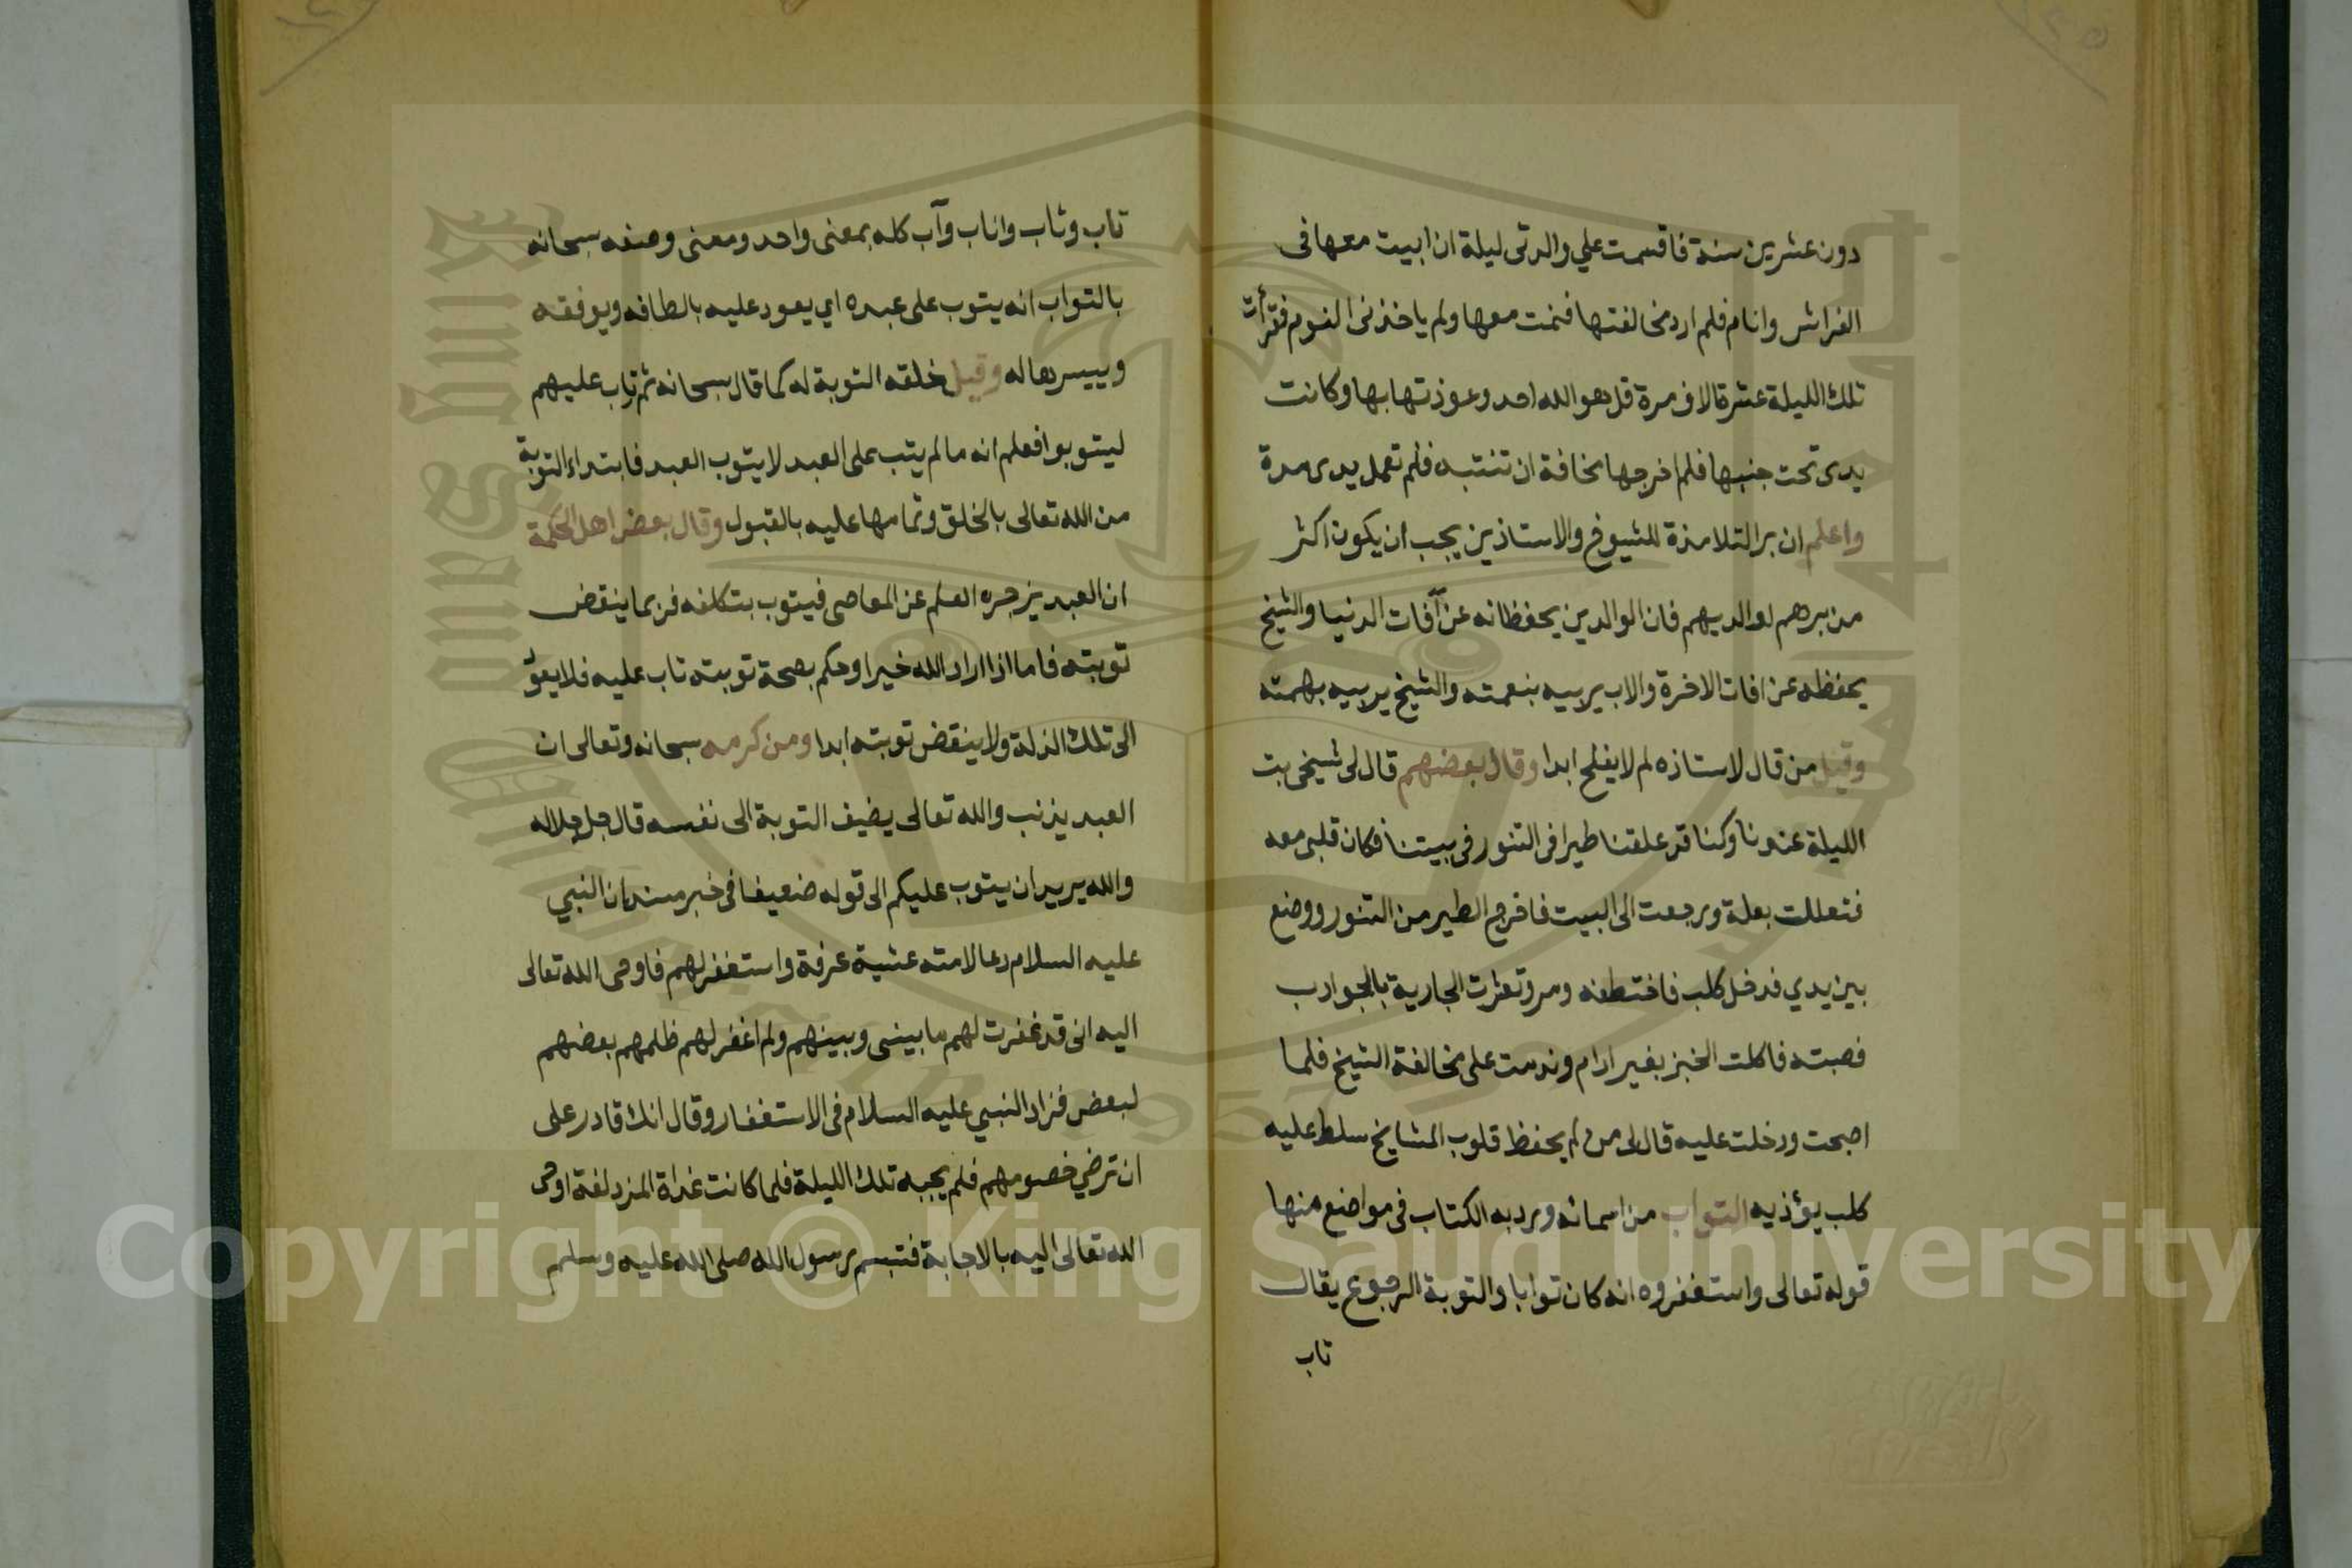 دون عشرين سنة فاقسمت علي والدتى ليلة ان ابيت معها فى
الفراش وانام فلم ارد مخالفتها فنمت معها ولم ياخذنى النوم فقرأت
تلك الليلة عشرة الاف مرة قل هو الله احد وعوذتها بها وكانت
يدى تحت جنبها فلم اخرجها مخافة ان تنتبه فلم تعمل يدى مدة
واعلم ان بر التلامذة للشيوخ والاستاذين يجب ان يكون اكثر
من برهم لوالديهم فان الوالدين يحفظانه عن آفات الدنيا والشيخ
يحفظه عن افات الاخرة والاب يربيه بنعمته والشيخ يربيه بهمته
وقيل من قال لاستاذه لم لا يفلح ابدا وقال بعضهم قال لى شيخى بت
الليلة عندنا وكنا قد علقنا طيرا فى التنور فى بيتنا فكان قلبى معه
فتعللت بعلة ورجعت الى البيت فاخرج الطير من التنور ووضع
بين يدي فدخل كلب فاختطفه ومر وتعثرت الجارية بالجوارب
فصبته فاكلت الخبز بغير ادام وندمت على مخالفة الشيخ فلما
اصبحت ودخلت عليه قال لى من لم يحفظ قلوب المشايخ سلط عليه
كلب يؤذيه التواب من اسمائه ورد به الكتاب فى مواضع منها
قوله تعالى واستغفروه انه كان توابا والتوبة الرجوع يقال
تاب
تاب وثاب واناب وآب كله بمعنى واحد ومعنى وصفه سبحانه
بالتواب انه يتوب على عبده اي يعود عليه بالطافه ويوفقه
وييسرها له وقيل خلقه التوبة له كما قال سبحانه ثم تاب عليهم
ليتوبوا فعلم انه ما لم يتب على العبد لا يتوب العبد فابتداء التوبة
من الله تعالى بالخلق وتمامها عليه بالقبول وقال بعض اهل الحكمة
ان العبد يزجره العلم عن المعاصى فيتوب بتكلفه فربما ينقض
توبته فاما اذا اراد الله خيرا وحكم بصحة توبته تاب عليه فلا يعود
الى تلك الذلة ولا ينقض توبته ابدا ومن كرمه سبحانه وتعالى ان
العبد يذنب والله تعالى يضيف التوبة الى نفسه قال جل جلاله
والله يريد ان يتوب عليكم الى قوله ضعيفا فى خبر مسند ان النبي
عليه السلام دعا لامته عشية عرفة واستغفر لهم فاوحى الله تعالى
اليه انى قد غفرت لهم ما بينى وبينهم ولم اغفر لهم ظلمهم بعضهم
لبعض فزاد النبي عليه السلام فى الاستغفار وقال انك قادر على
ان ترضي خصومهم فلم يجبه تلك الليلة فلما كانت غداة المزدلفة اوحى
الله تعالى اليه بالاجابة فتبسم رسول الله صلى الله عليه وسلم
Copyright © King Saud University